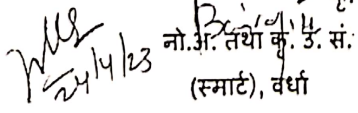 24/4/23
नो.अ. तथा कृ. उ. सं.
(स्मार्ट), वर्धा